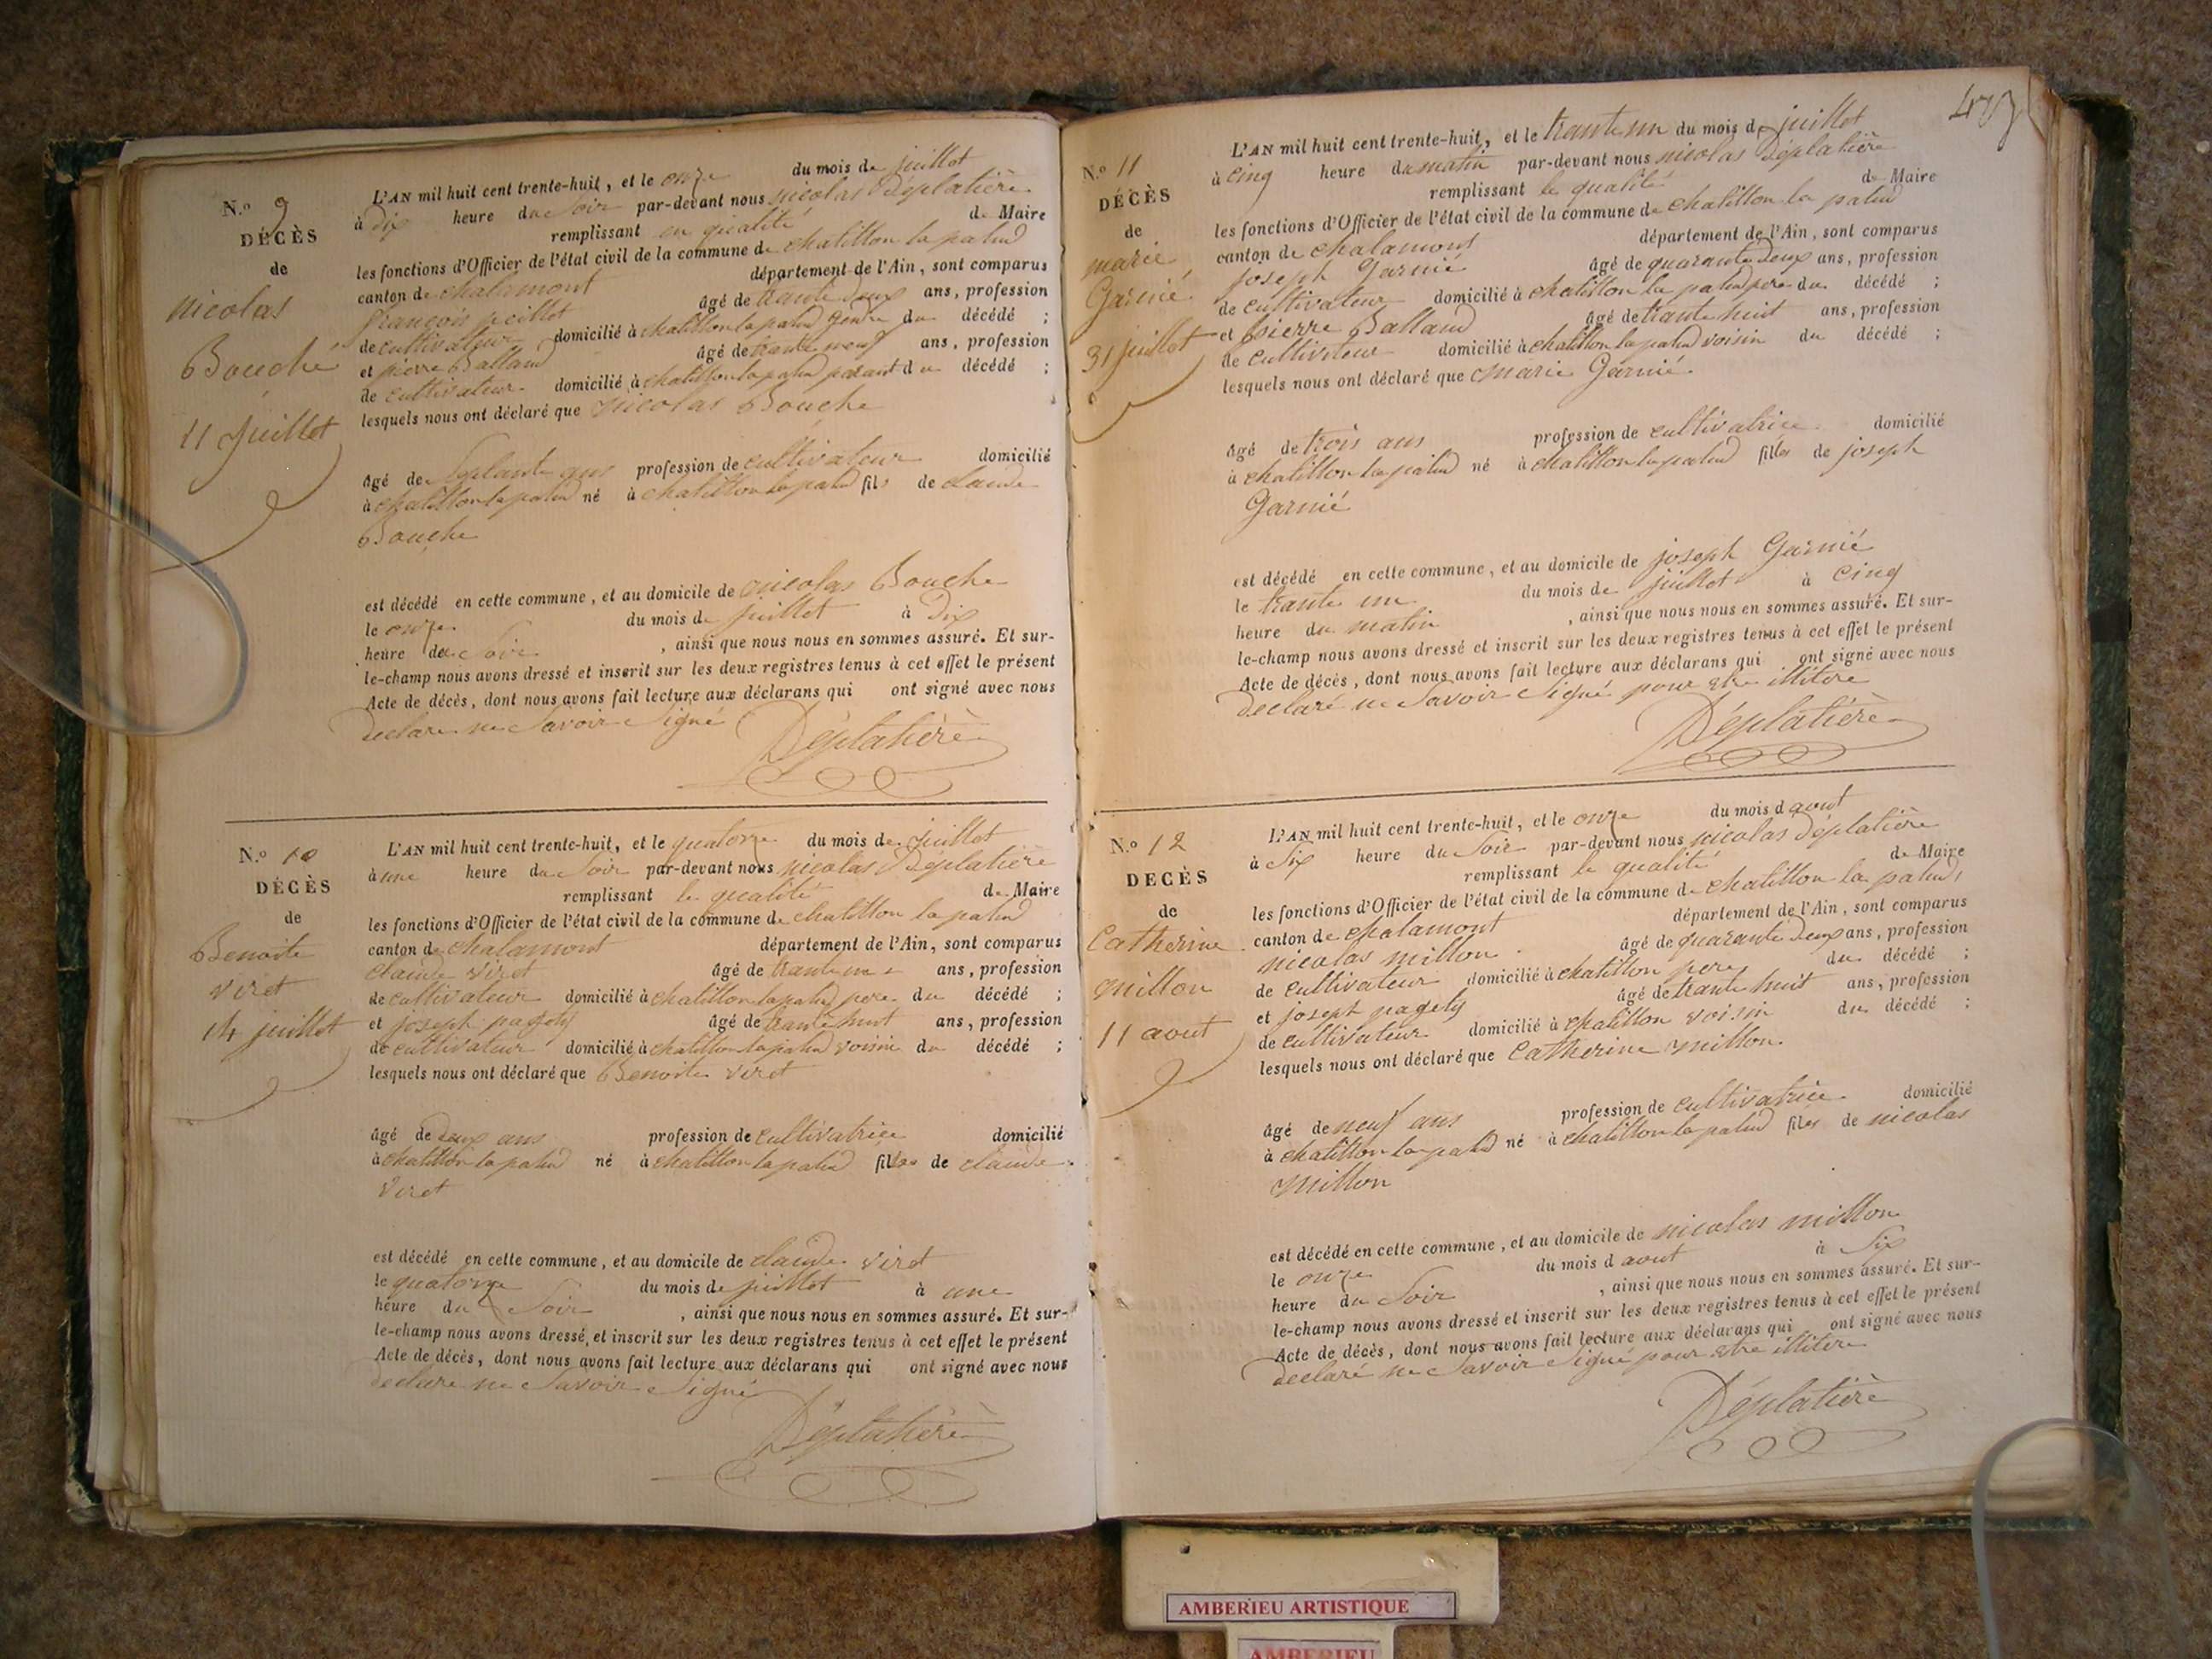 N.º 9
DÉCÈS
de
nicolas
Bouché
11 juillet
L'AN mil huit cent trente-huit, et le onze du mois de juillet
à dix heure du soir par-devant nous nicolas Déplatière
remplissant en qualité de Maire
les fonctions d'Officier de l'état civil de la commune de chatillon la palud
canton de chalamont département de l'Ain, sont comparus
françois peillot âgé de trante deux ans, profession
de cultivateur domicilié à chatillon la palud gendre du décédé ;
et pierre Balland âgé de trante neuf ans, profession
de cultivateur domicilié à chatillon la palud parant du décédé ;
lesquels nous ont déclaré que nicolas Bouche
âgé de Septante ans profession de cultivateur domicilié
à chatillon la palud né à chatillon la palud fils de claude
Bouche
est décédé en cette commune, et au domicile de nicolas Bouche
le onze du mois de juillet à Dix
heure du Soir , ainsi que nous nous en sommes assuré. Et sur-
le-champ nous avons dressé et inscrit sur les deux registres tenus à cet effet le présent
Acte de décès, dont nous avons fait lecture aux déclarans qui ont signé avec nous
declare ne Savoir Signé
Déplatière
N.º 10
DÉCÈS
de
Benoite
viret
14 juillet
L'AN mil huit cent trente-huit, et le quatorze du mois de juillet
à une heure du Soir par-devant nous nicolas Déplatière
remplissant le qualité de Maire
les fonctions d'Officier de l'état civil de la commune de chatillon la palud
canton de chalamont département de l'Ain, sont comparus
claude viret âgé de ans, profession
de cultivateur domicilié à chatillon la palud pere du décédé ;
et joseph âgé de trante huit ans, profession
de cultivateur domicilié à chatillon la palud voisin du décédé ;
lesquels nous ont déclaré que Benoite viret
âgé de deux ans profession de cultivatrice domicilié
à chatillon la palud né à chatillon la palud filles de claude
viret
est décédé en cette commune, et au domicile de claude viret
le quatorze du mois de juillet à une
heure du Soir , ainsi que nous nous en sommes assuré. Et sur-
le-champ nous avons dressé et inscrit sur les deux registres tenus à cet effet le présent
Acte de décès, dont nous avons fait lecture aux déclarans qui ont signé avec nous
declare ne Savoir Signé
Déplatière
N.º 11
DÉCÈS
de
marie
Garnié
31 juillet
L'AN mil huit cent trente-huit, et le trante un du mois de juillet
à cinq heure du matin par-devant nous nicolas Déplatière
remplissant le qualité de Maire
les fonctions d'Officier de l'état civil de la commune de chatillon la palud
canton de chalamont département de l'Ain, sont comparus
joseph Garnié âgé de quarante deux ans, profession
de cultivateur domicilié à chatillon la palud pere du décédé ;
et pierre Balland âgé de trante huit ans, profession
de cultivateur domicilié à chatillon la palud voisin du décédé ;
lesquels nous ont déclaré que marie Garnié
âgé de trois ans profession de cultivatrice domicilié
à chatillon la palud né à chatillon la palud filles de joseph
Garnié
est décédé en cette commune, et au domicile de joseph Garnié
le trante un du mois de juillet à cinq
heure du matin , ainsi que nous nous en sommes assuré. Et sur-
le-champ nous avons dressé et inscrit sur les deux registres tenus à cet effet le présent
Acte de décès, dont nous avons fait lecture aux déclarans qui ont signé avec nous
declaré ne Savoir Signé pour etre illitere
Déplatière
N.º 12
DECÈS
de
Catherine
millon
11 aout
L'AN mil huit cent trente-huit, et le onze du mois d aout
à Six heure du Soir par-devant nous nicolas Déplatière
remplissant le qualité de Maire
les fonctions d'Officier de l'état civil de la commune de chatillon la palud,
canton de chalamont département de l'Ain, sont comparus
nicolas millon âgé de quarante deux ans, profession
de cultivateur domicilié à chatillon pere du décédé ;
et joseph âgé de trante huit ans, profession
de cultivateur domicilié à chatillon voisin du décédé ;
lesquels nous ont déclaré que Catherine millon
âgé de neuf ans profession de cultivatrice domicilié
à chatillon la palud né à chatillon la palud filles de nicolas
millon
est décédé en cette commune, et au domicile de nicolas millon
le onze du mois d aout à Six
heure du Soir , ainsi que nous nous en sommes assuré. Et sur-
le-champ nous avons dressé et inscrit sur les deux registres tenus à cet effet le présent
Acte de décès, dont nous avons fait lecture aux déclarans qui ont signé avec nous
declaré ne Savoir Signé pour etre illitere
Déplatière
AMBERIEU ARTISTIQUE
AMBERIEU